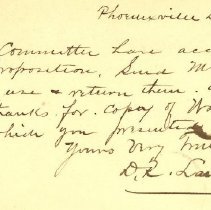 Phoenixville
Committee have acc
proposition, Send M
use & return them.
thanks for copy of
which you presented
Yours Very Tru
D. R. Lan